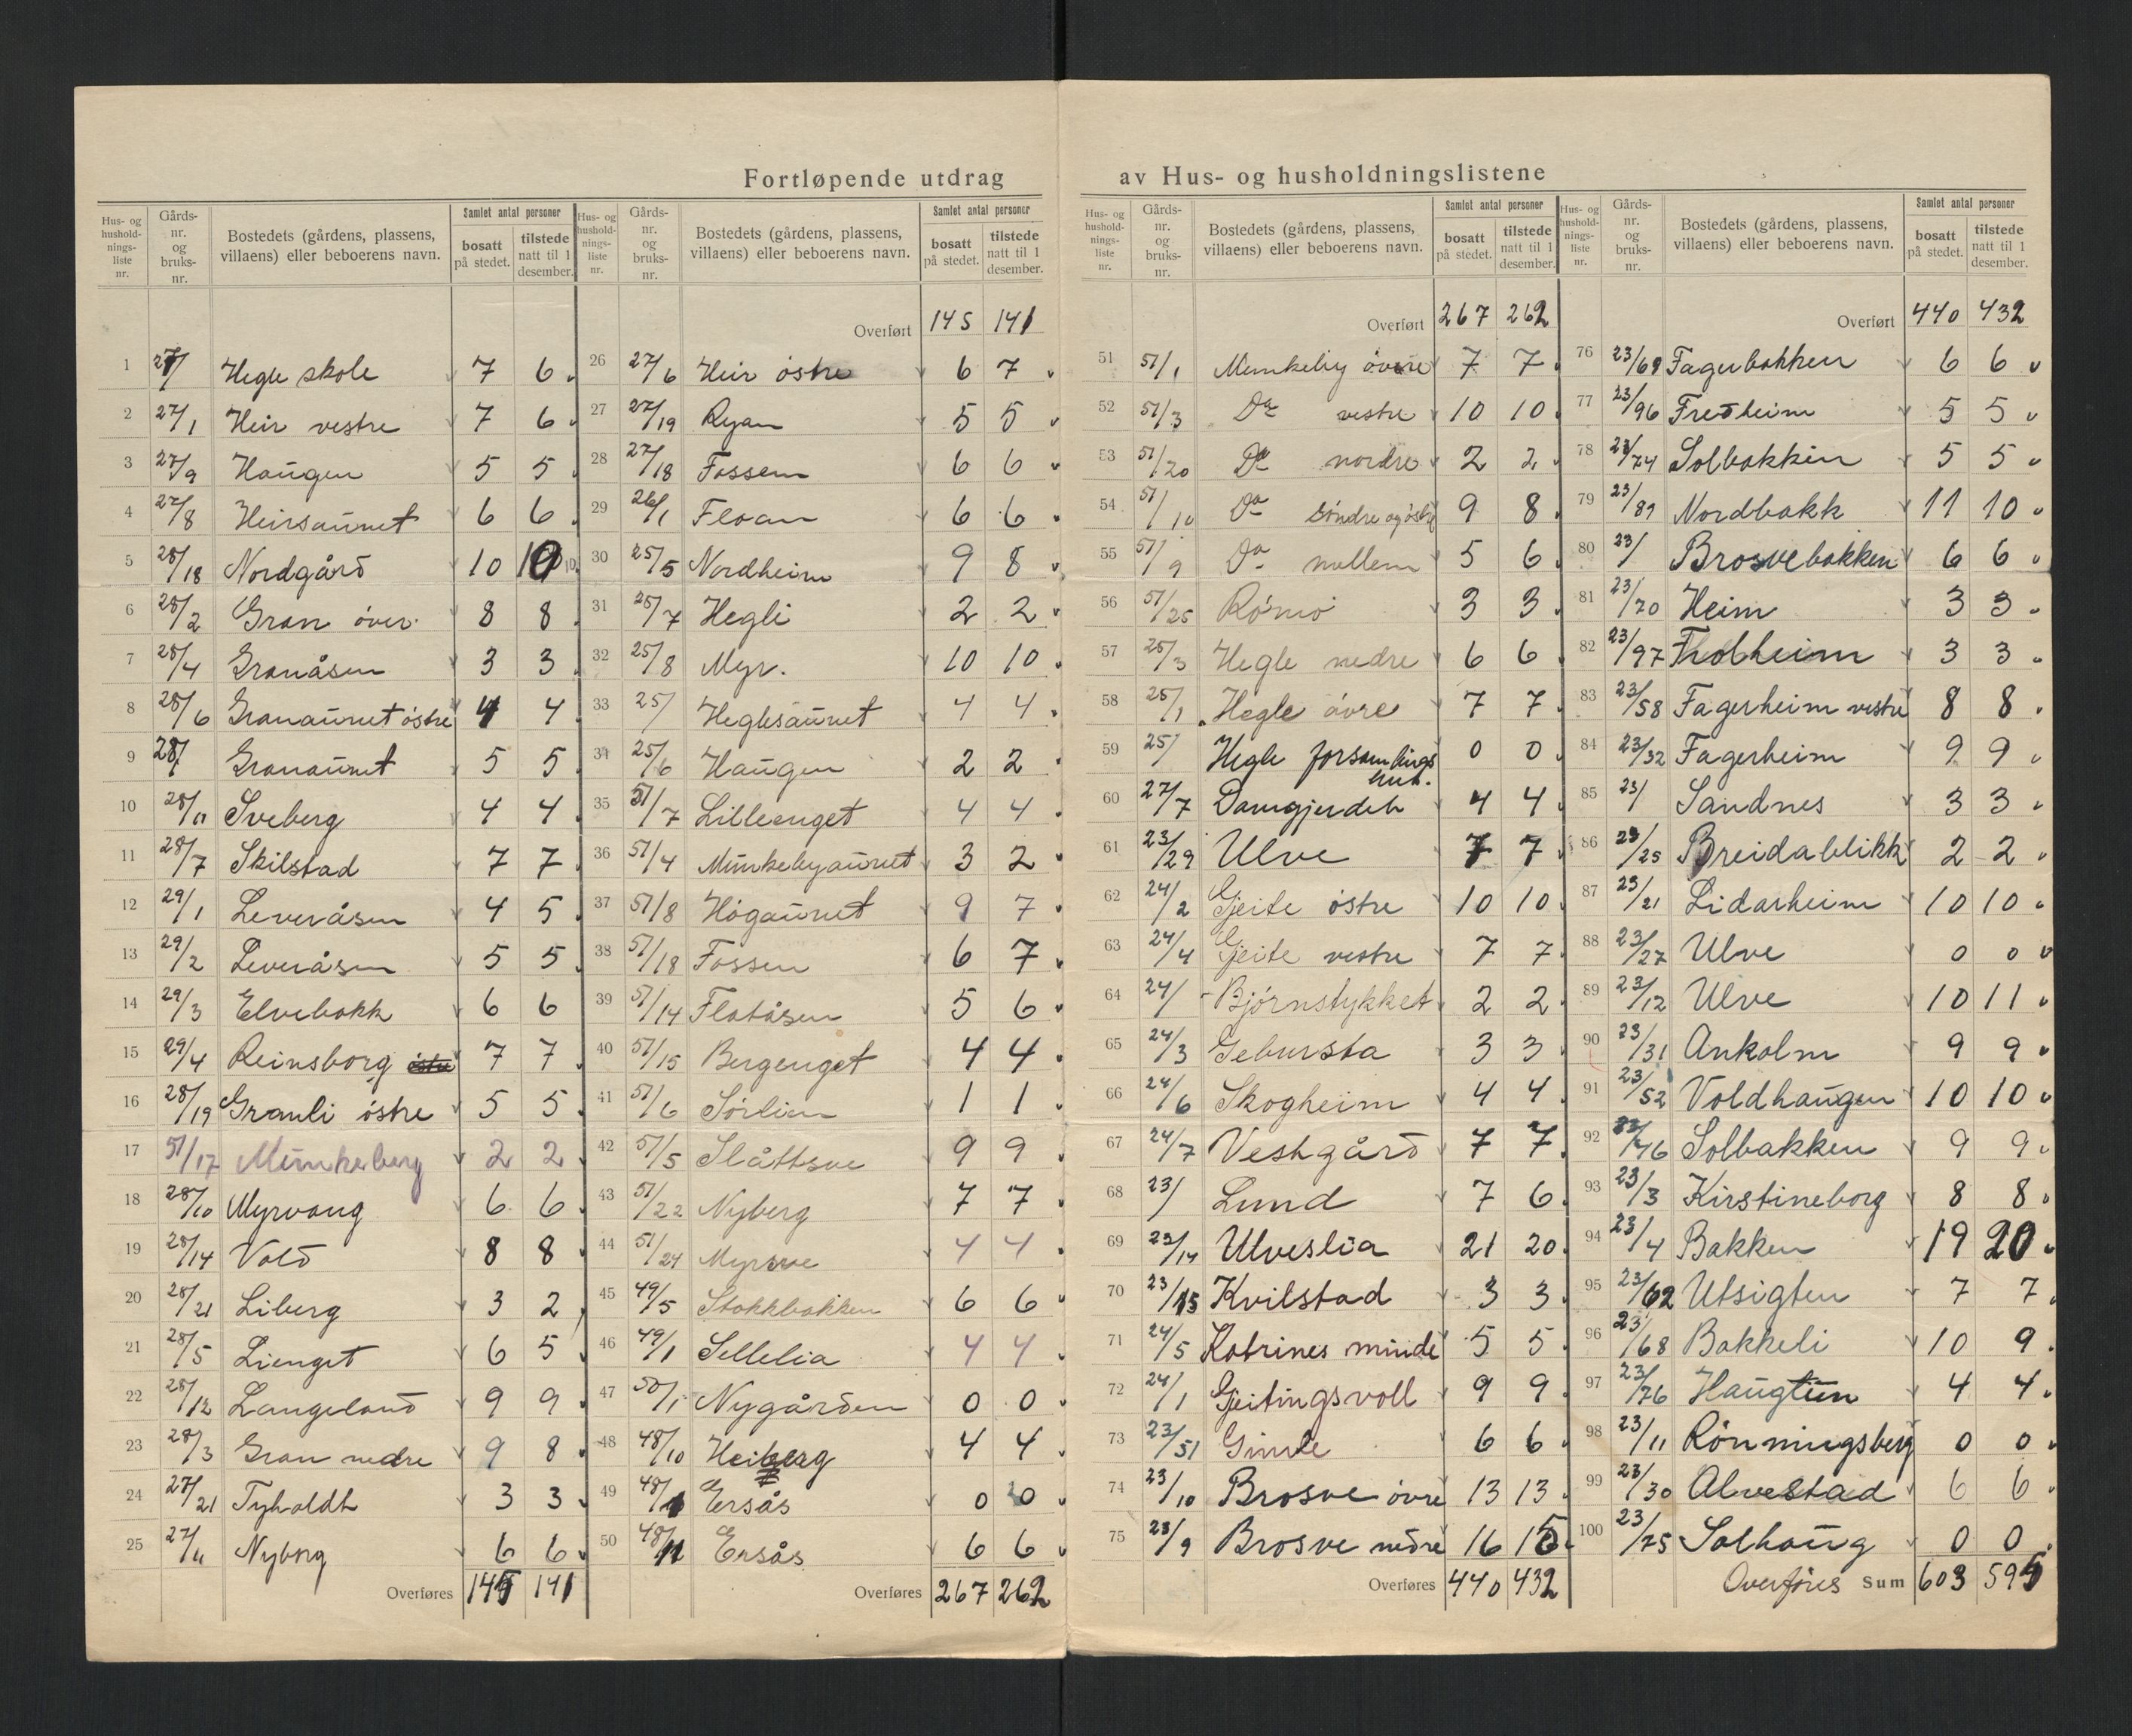 Fortløpende utdrag av Hus- og husholdningslistene
Hus- og hushold-nings-liste nr. Gårds-nr. og bruks-nr. Bostedets (gårdens, plassens, villaens) eller beboerens navn. Samlet antal personer bosatt på stedet. tilstede natt til 1 desember.
1 27/ Hegle skole 7 6
2 27/1 Heir vestre 7 6
3 27/9 Haugen 5 5
4 27/8 Heirsaunet 6 6
5 28/18 Nordgård 10 10
6 28/2 Gran över 8 8
7 28/4 Granåsen 3 3
8 28/6 Granaunet östre 4 4
9 28/ Granaunet 5 5
10 28/11 Sveberg 4 4
11 28/7 Skilstad 7 7
12 29/1 Leveråsen 4 5
13 29/2 Leveråsen 5 5
14 29/3 Elvebakk 6 6
15 29/4 Reinsborg östre 7 7
16 28/19 Granli östre 5 5
17 51/17 Munkeberg 2 2
18 28/10 Myrvang 6 6
19 28/14 Vold 8 8
20 28/21 Liberg 3 2
21 28/5 Lienget 6 5
22 28/12 Langeland 9 9
23 28/3 Gran nedre 9 8
24 27/21 Tyholdt 3 3
25 27/11 Nyborg 6 6
Overføres 145 141
Hus- og hushold-nings-liste nr. Gårds-nr. og bruks-nr. Bostedets (gårdens, plassens, villaens) eller beboerens navn. Samlet antal personer bosatt på stedet. tilstede natt til 1 desember.
Overført 145 141
26 27/6 Heir östre 6 7
27 27/19 Ryan 5 5
28 27/18 Fossem 6 6
29 26/1 Floan 6 6
30 25/5 Nordheim 9 8
31 25/7 Hegli 2 2
32 25/8 Myr. 10 10
33 25/ Heglesaunet 4 4
34 25/6 Haugen 2 2
35 51/7 Lilleenget 4 4
36 51/4 Munkebyaunet 3 2
37 51/8 Högaunet 9 7
38 51/18 Fossen 6 7
39 51/14 Flatåsen 5 6
40 51/15 Bergenget 4 4
41 51/6 Sörlien 1 1
42 51/5 Slåttsve 9 9
43 51/22 Nyberg 7 7
44 51/24 Myrsve 4 4
45 49/5 Stokkbakken 6 6
46 49/1 Sellelia 4 4
47 50/1 Nygården 0 0
48 48/10 Heiberg 4 4
49 48/1 Ersås 0 0
50 48/11 Ersås 6 6
Overføres 267 262
Hus- og hushold-nings-liste nr. Gårds-nr. og bruks-nr. Bostedets (gårdens, plassens, villaens) eller beboerens navn. Samlet antal personer bosatt på stedet. tilstede natt til 1 desember.
Overført 267 262
51 51/1 Munkeby övre 7 7
52 51/3 Do vestre 10 10
53 51/20 Do nordre 2 2
54 51/10 Do söndre og östre 9 8
55 51/9 Do mellem 5 6
56 51/25 Römo 3 3
57 25/3 Hegle nedre 6 6
58 25/1 Hegle övre 7 7
59 25/ Hegle forsamlings hus. 0 0
60 27/7 Damgjerdet 4 4
61 23/29 Ulve 7 7
62 24/2 Gjeite östre 10 10
63 24/4 Gjeite vestre 7 7
64 24/ Björnstykket 2 2
65 24/3 Gebursta 3 3
66 24/6 Skogheim 4 4
67 24/7 Vestgård 7 7
68 23/ Lund 7 6
69 23/14 Ulveslia 21 20
70 23/15 Kvilstad 3 3
71 24/5 Katrines minde 5 5
72 24/1 Gjeitingsvoll 9 9
73 23/51 Gimle 6 6
74 23/10 Brosve övre 13 13
75 23/9 Brosve nedre 16 15
Overføres 440 432
Hus- og hushold-nings-liste nr. Gårds-nr. og bruks-nr. Bostedets (gårdens, plassens, villaens) eller beboerens navn. Samlet antal personer bosatt på stedet. tilstede natt til 1 desember.
Overført 440 432
76 23/69 Fagerbakken 6 6
77 23/96 Fredheim 5 5
78 23/74 Solbakken 5 5
79 23/89 Nordbakk 11 10
80 23/ Brosvebakken 6 6
81 23/70 Heim 3 3
82 23/97 Trolheim 3 3
83 23/58 Fagerheim vestre 8 8
84 23/32 Fagerheim 9 9
85 23/ Sandnes 3 3
86 23/25 Breidablikk 2 2
87 23/21 Lidarheim 10 10
88 23/27 Ulve 0 0
89 23/12 Ulve 10 11
90 23/31 Ankolm 9 9
91 23/52 Voldhaugen 10 10
92 23/46 Solbakken 9 9
93 23/3 Kirstineborg 8 8
94 23/4 Bakken 19 20
95 23/62 Utsigten 7 7
96 23/68 Bakkeli 10 9
97 23/76 Haugtun 4 4
98 23/11 Rönningsberg 0 0
99 23/30 Alvestad 6 6
100 23/75 Solhaug 0 0
Overføres Sum 603 595